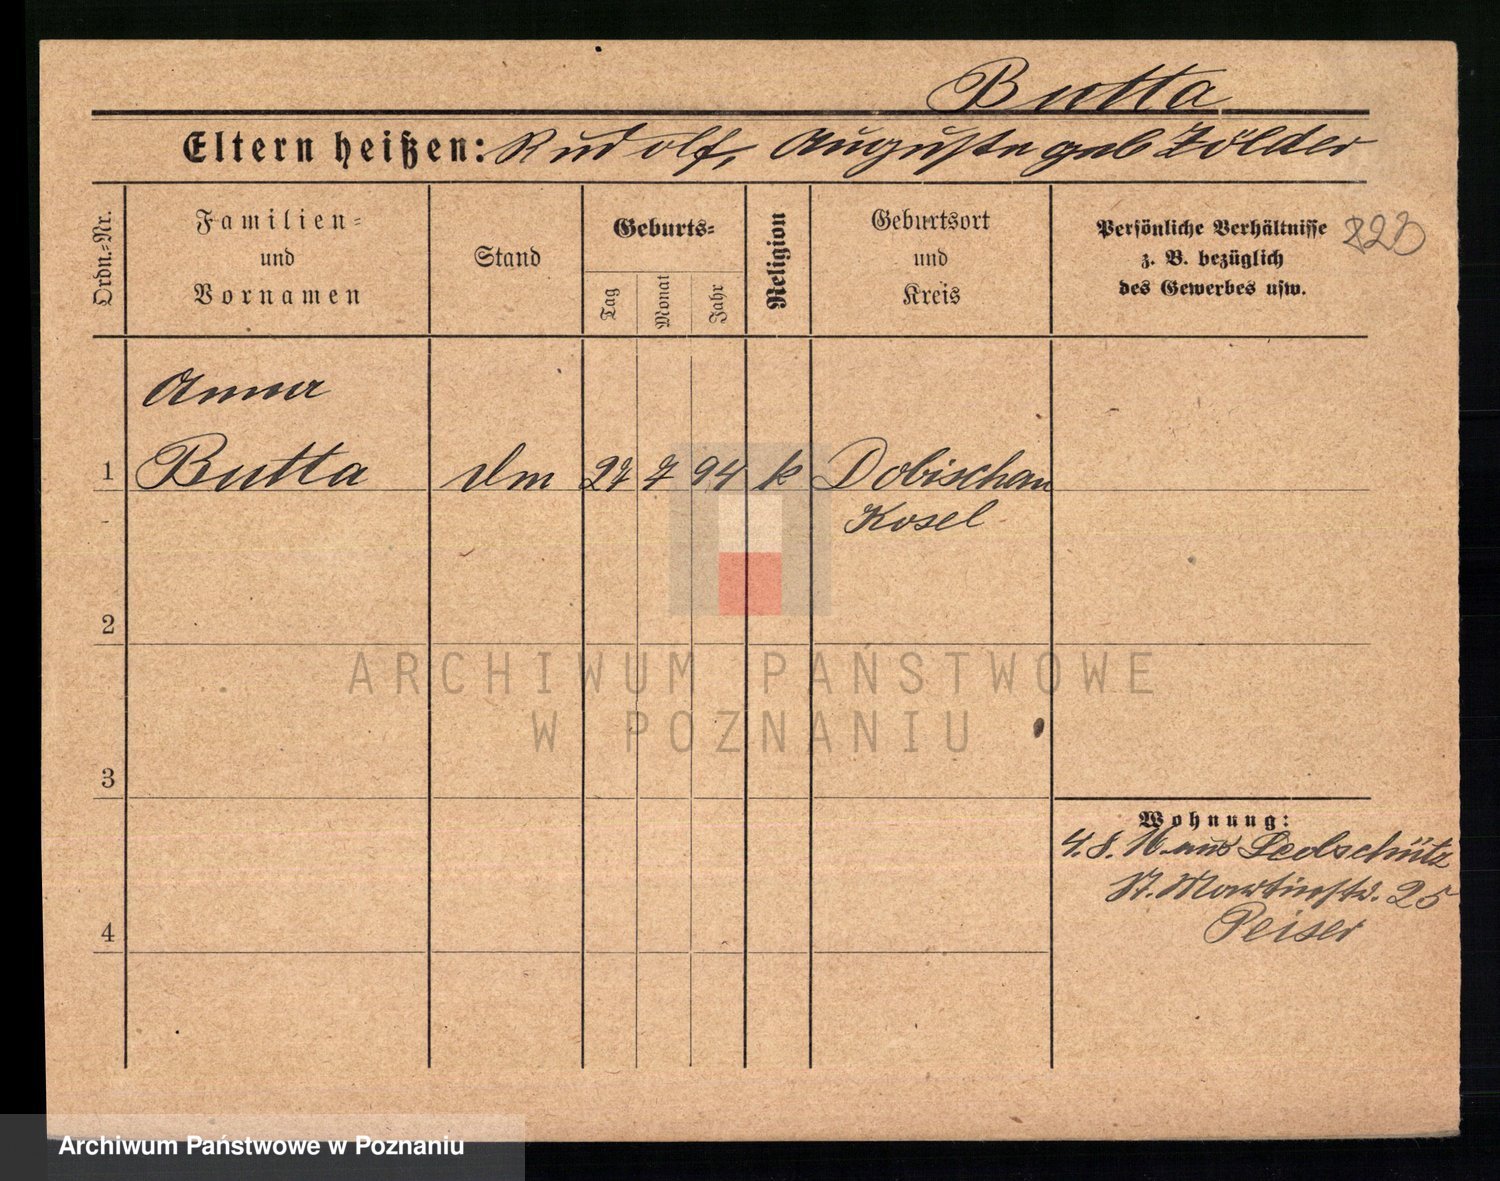 Butta
Eltern heißen: Rudolf, Auguste geb Zölder
Ordn.-Nr.
Familien-
und
Vornamen
Stand
Geburts-
Tag
Monat
Jahr
Religion
Geburtsort
und
Kreis
Persönliche Verhältnisse
z. B. bezüglich
des Gewerbes usw.
Anna
1 Butta 27 7 94 k Dobischau
Kosel
2
3
4
Wohnung:
4.8.16. aus Leobschütz
St. Martinstr. 25
Peiser
ARCHIWUM PAŃSTWOWE
W POZNANIU
Archiwum Państwowe w Poznaniu